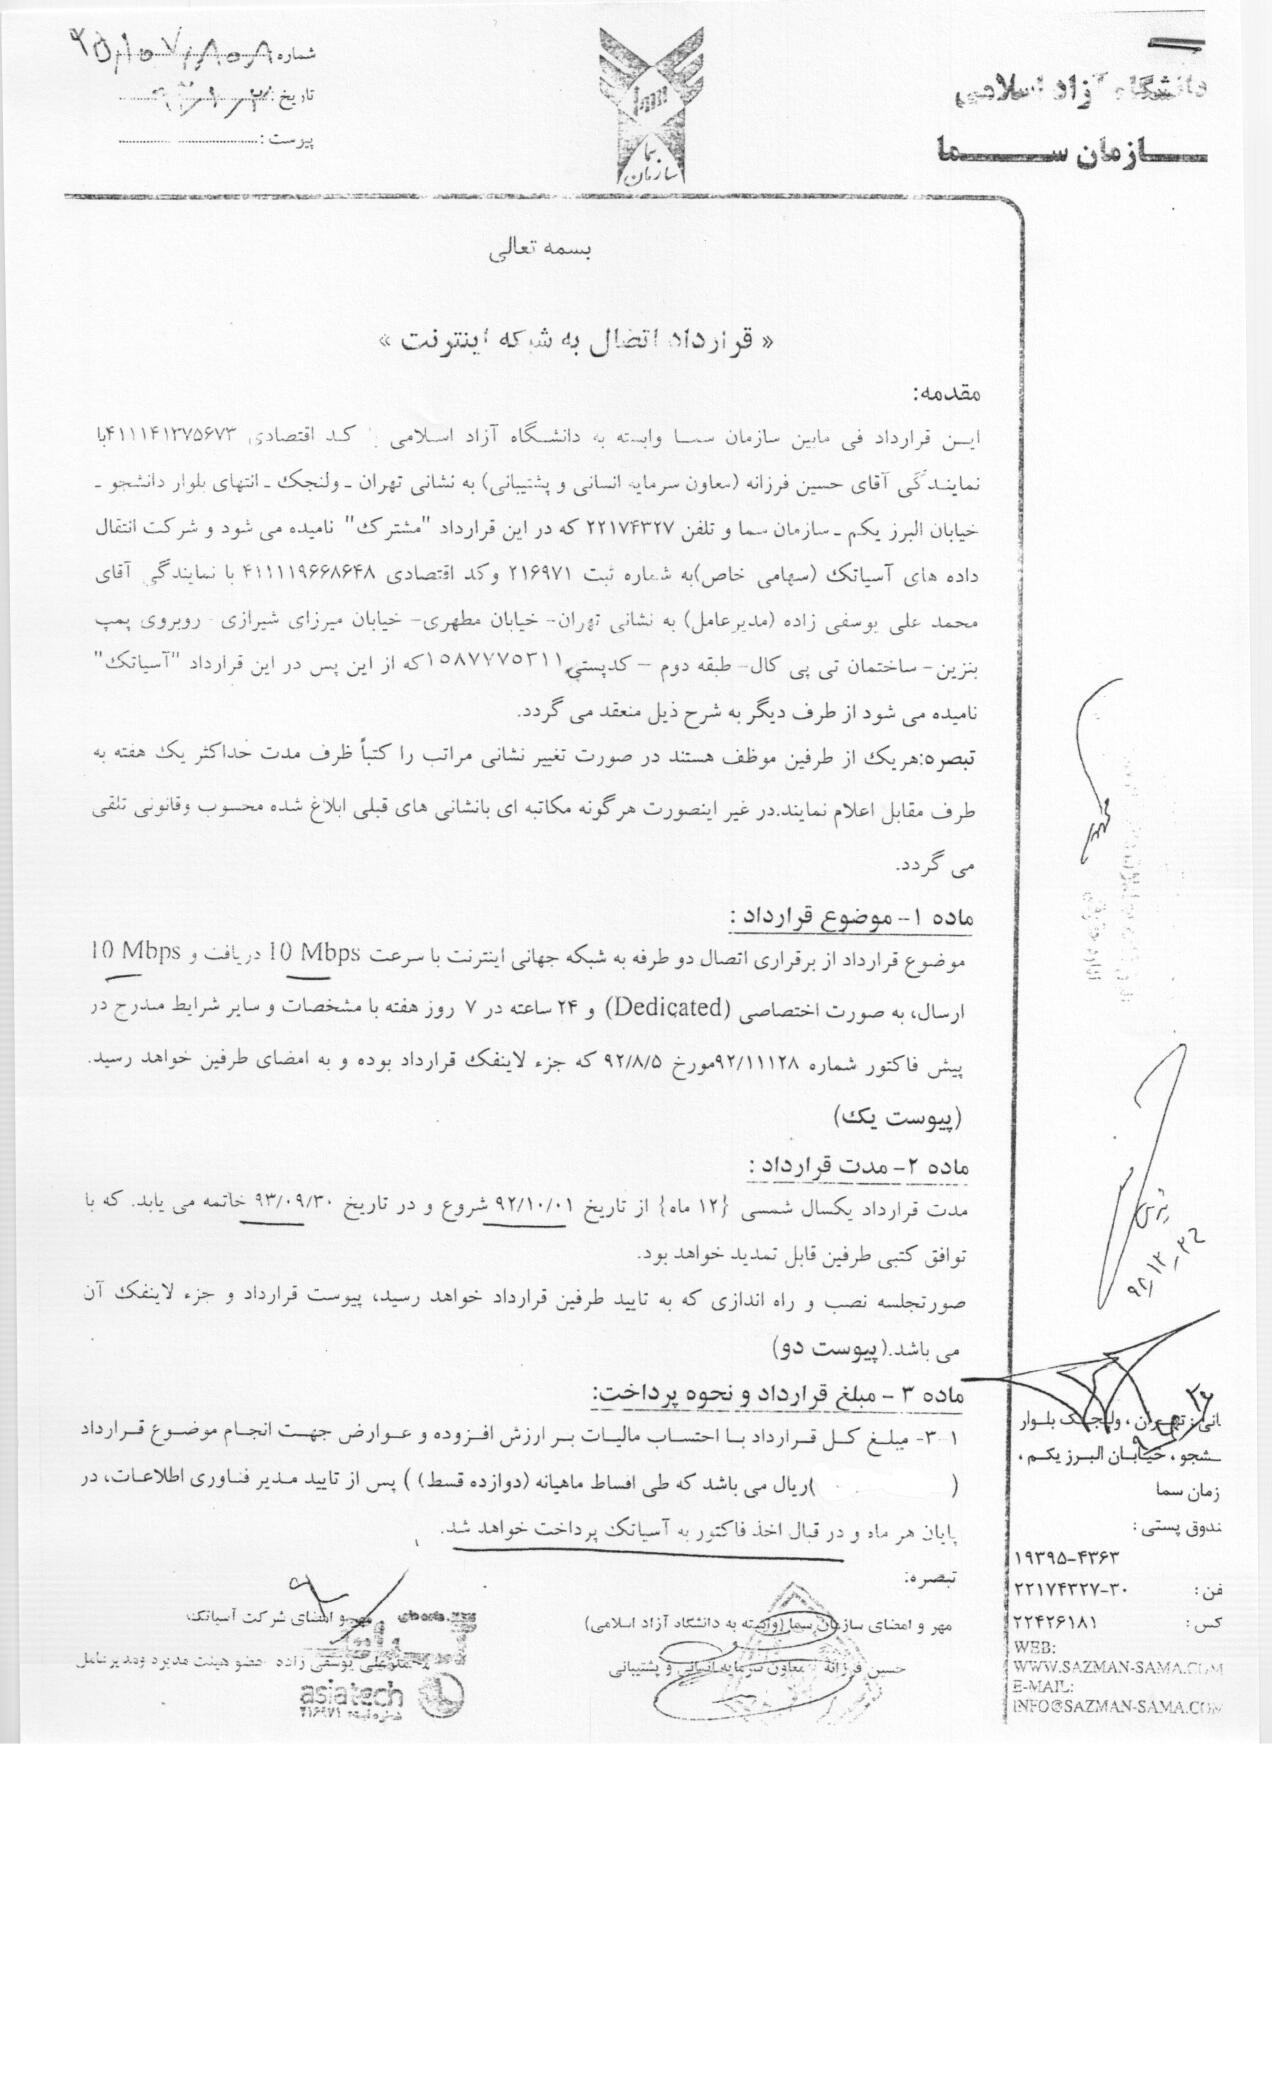 دانشگاه آزاد اسلامی
سازمان سما
سازمان سما
شماره
تاریخ:
پیوست:
بسمه تعالی
« قرارداد اتصال به شبکه اینترنت »
مقدمه:
این قرارداد فی مابین سازمان سما وابسته به دانشگاه آزاد اسلامی با کد اقتصادی ۴۱۱۱۴۱۲۷۵۶۷۳با
نمایندگی آقای حسین فرزانه (معاون سرمایه انسانی و پشتیبانی) به نشانی تهران ـ ولنجک ـ انتهای بلوار دانشجو ـ
خیابان البرز یکم ـ سازمان سما و تلفن ۲۲۱۷۴۳۲۷ که در این قرارداد "مشترک" نامیده می شود و شرکت انتقال
داده های آسیاتک (سهامی خاص)به شماره ثبت ۲۱۶۹۷۱ وکد اقتصادی ۴۱۱۱۱۹۶۶۸۶۴۸ با نمایندگی آقای
محمد علی یوسفی زاده (مدیرعامل) به نشانی تهران- خیابان مطهری- خیابان میرزای شیرازی - روبروی پمپ
بنزین- ساختمان تی پی کال- طبقه دوم – کدپستی ۱۵۸۷۷۷۵۳۱۱که از این پس در این قرارداد "آسیاتک"
نامیده می شود از طرف دیگر به شرح ذیل منعقد می گردد.
تبصره:هریک از طرفین موظف هستند در صورت تغییر نشانی مراتب را کتباً ظرف مدت حداکثر یک هفته به
طرف مقابل اعلام نمایند.در غیر اینصورت هرگونه مکاتبه ای بانشانی های قبلی ابلاغ شده محسوب وقانونی تلقی
می گردد.
ماده ۱- موضوع قرارداد :
موضوع قرارداد از برقراری اتصال دو طرفه به شبکه جهانی اینترنت با سرعت 10 Mbps دریافت و 10 Mbps
ارسال، به صورت اختصاصی (Dedicated) و ۲۴ ساعته در ۷ روز هفته با مشخصات و سایر شرایط مدرج در
پیش فاکتور شماره ۹۲/۱۱۱۲۸مورخ ۹۲/۸/۵ که جزء لاینفک قرارداد بوده و به امضای طرفین خواهد رسید.
(پیوست یک)
ماده ۲- مدت قرارداد :
مدت قرارداد یکسال شمسی {۱۲ ماه} از تاریخ ۹۲/۱۰/۰۱ شروع و در تاریخ ۹۳/۰۹/۳۰ خاتمه می یابد. که با
توافق کتبی طرفین قابل تمدید خواهد بود.
صورتجلسه نصب و راه اندازی که به تایید طرفین قرارداد خواهد رسید، پیوست قرارداد و جزء لاینفک آن
می باشد.(پیوست دو)
ماده ۳ - مبلغ قرارداد و نحوه پرداخت:
۳-۱- مبلغ کل قرارداد با احتساب مالیات بر ارزش افزوده و عوارض جهت انجام موضوع قرارداد
( )ریال می باشد که طی اقساط ماهیانه (دوازده قسط) ) پس از تایید مدیر فناوری اطلاعات، در
پایان هر ماه و در قبال اخذ فاکتور به آسیاتک پرداخت خواهد شد.
تبصره:
مهر و امضای سازمان سما (وابسته به دانشگاه آزاد اسلامی)
مهر و امضای شرکت آسیاتک
حسین فرزانه - معاون سرمایه انسانی و پشتیبانی
محمدعلی یوسفی زاده عضو هیئت مدیره ومدیرعامل
asiatech
شماره ثبت ۲۱۶۹۷۱
۹۲/۱۲/۲۶
انی: تهران ، ولنجک بلوار
شجو ، خیابان البرز یکم ،
زمان سما
ندوق پستی :
۱۹۳۹۵-۴۳۶۳
فن: ۲۲۱۷۴۳۲۷-۳۰
کس : ۲۲۴۲۶۱۸۱
WEB:
WWW.SAZMAN-SAMA.COM
E-MAIL:
INFO@SAZMAN-SAMA.COM